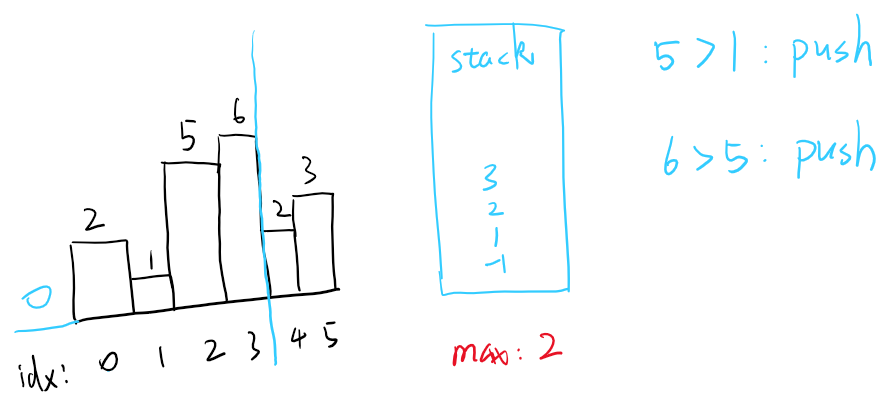 2 1 5 6 2 3
0
idx: 0 1 2 3 4 5
stack
3
2
1
-1
max: 2
5 > 1 : push
6 > 5 : push